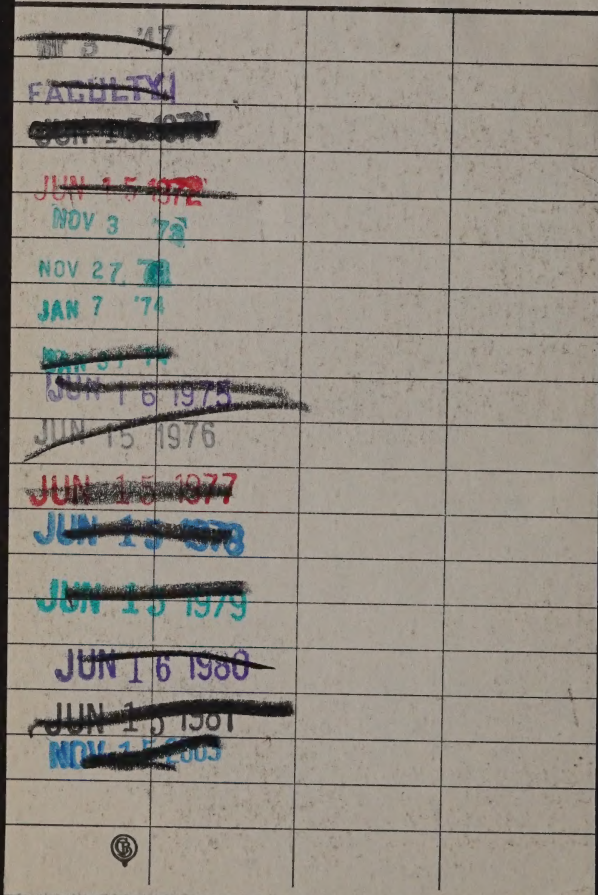 '47
FACULTY
JUN 15 1971
JUN 15 1972
NOV 3 '73
NOV 27
JAN 7 '74
'74
JUN 16 1975
JUN 15 1976
JUN 15 1977
JUN 15 1978
JUN 15 1979
JUN 16 1980
JUN 15 1981
NOV 15 2005